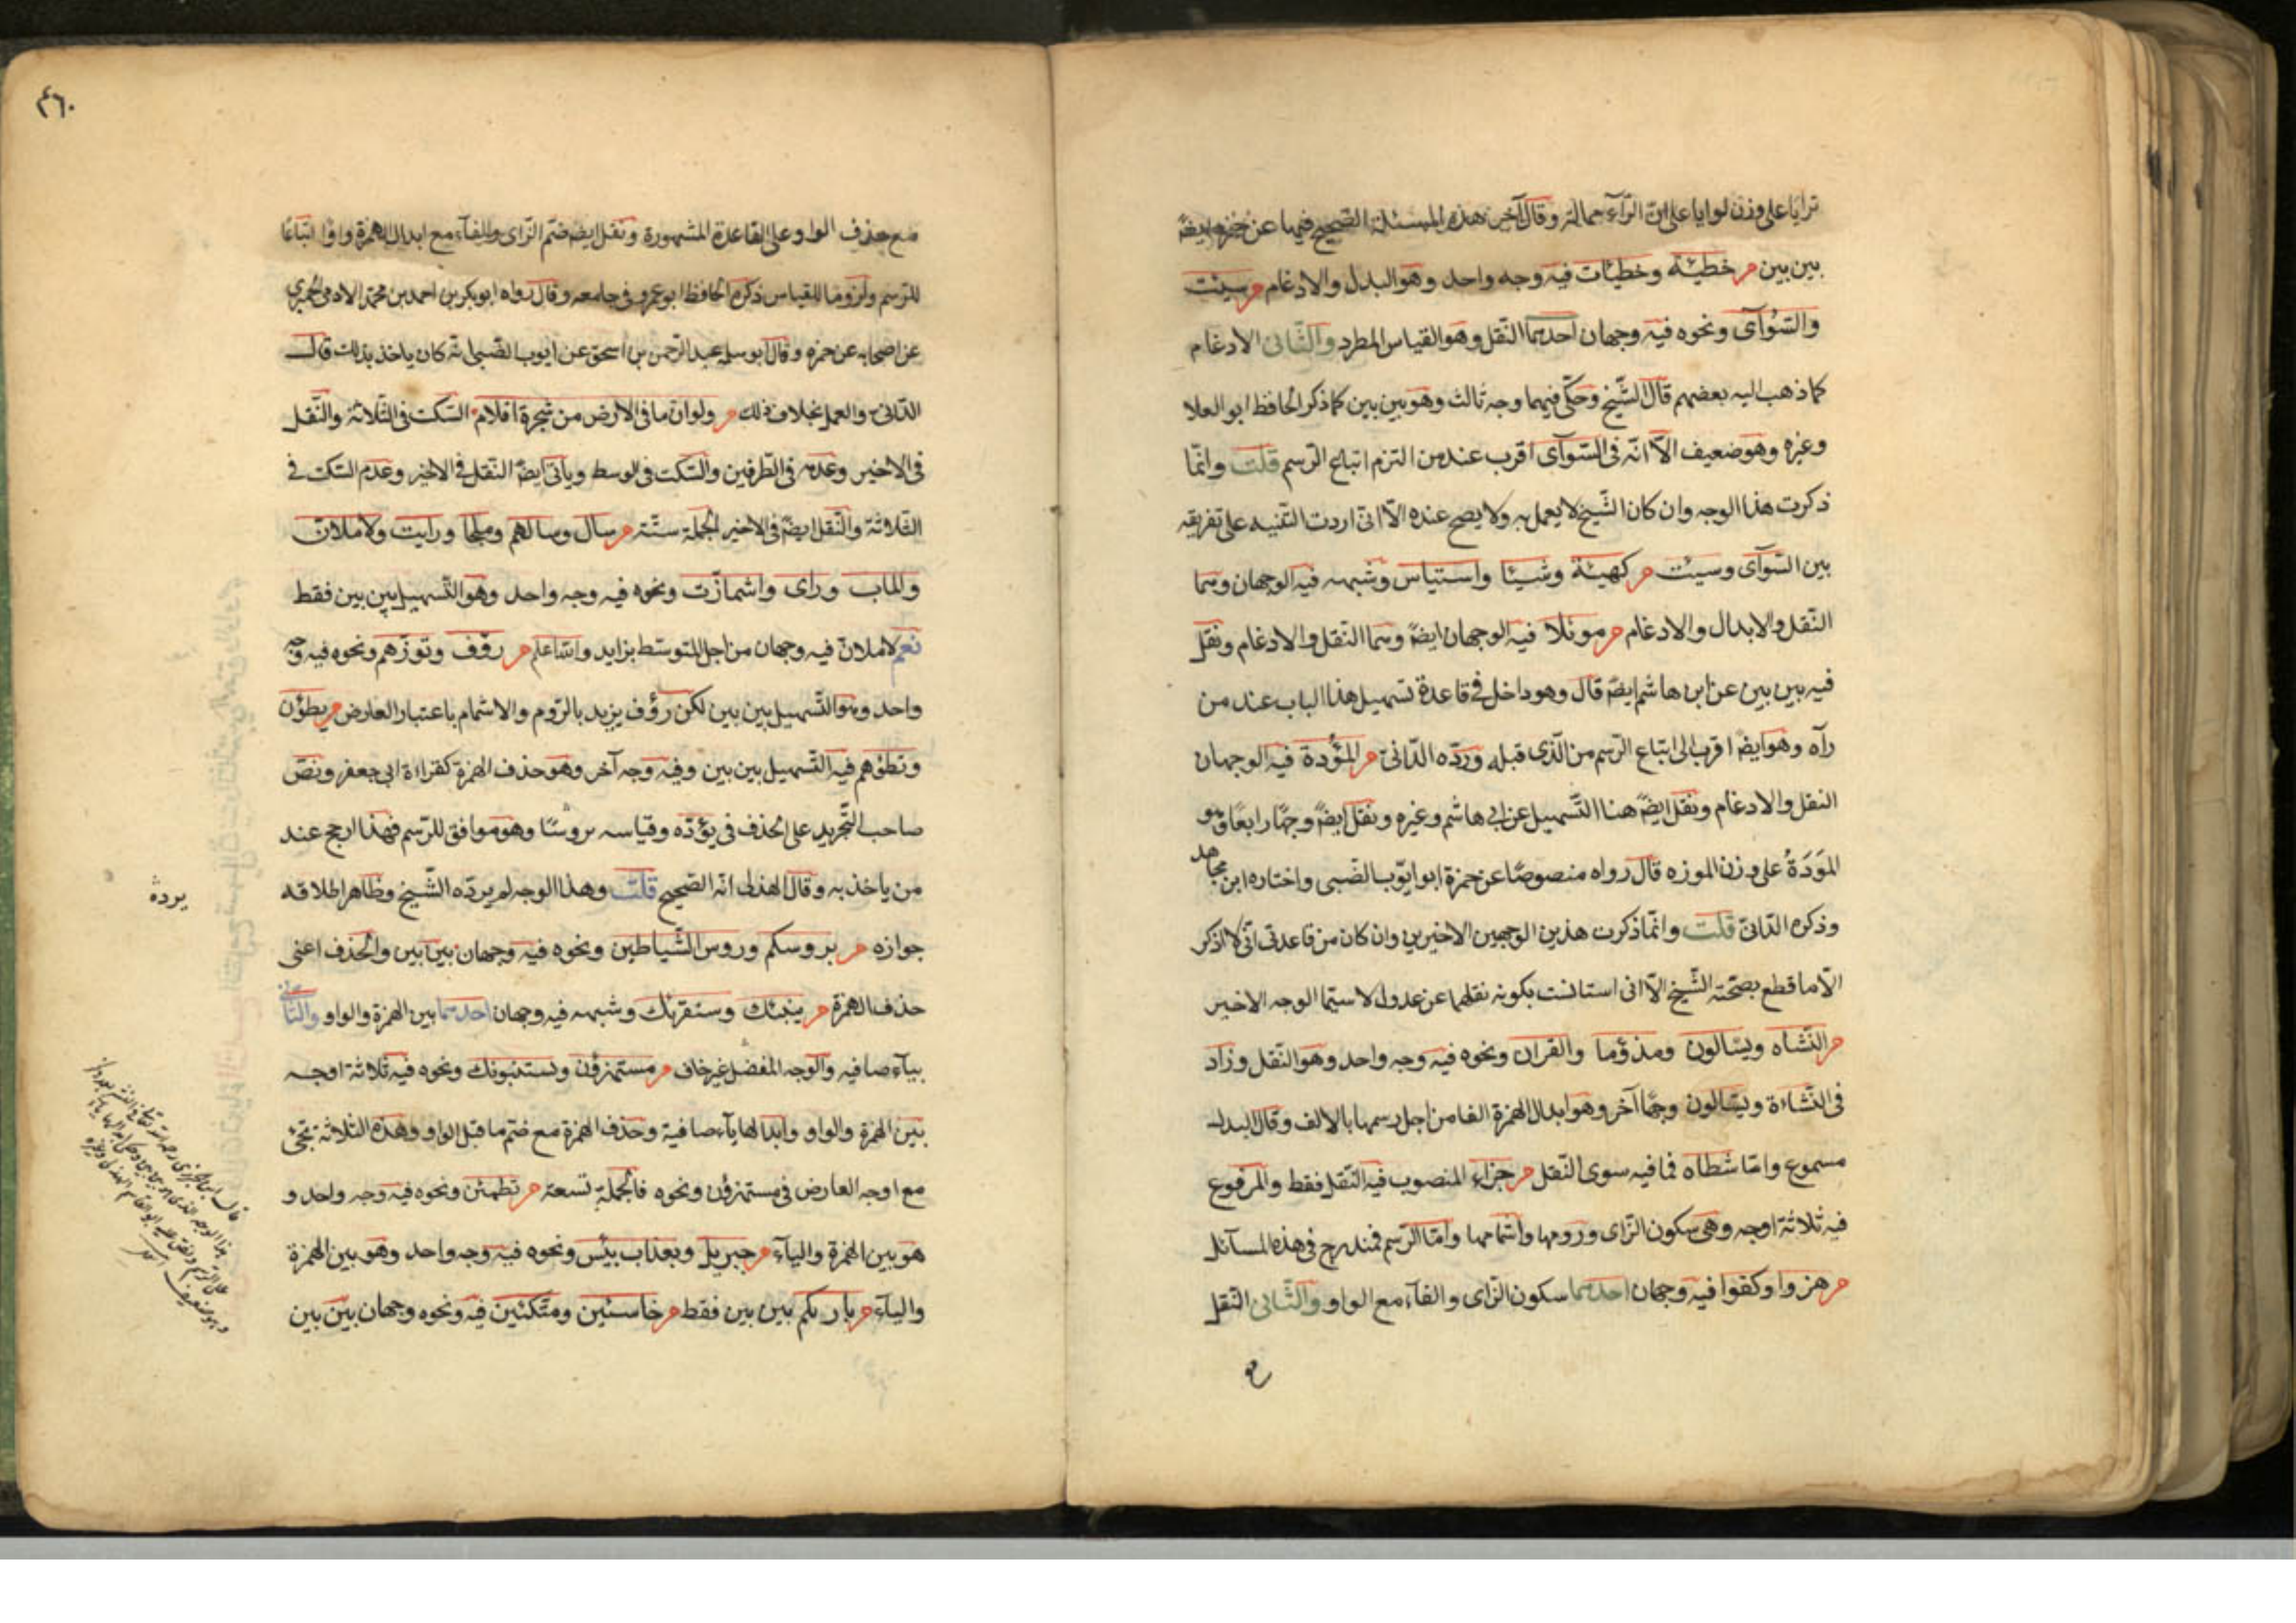 ترايا على وزن لوايا على ان الراء ممالة وقال آخر هذه المسئلة الصحيح فيها عن حمزه ايضا
بين بين م خطيئة وخطيئات فيه وجه واحد وهو البدل والادغام م سيئت
والسوآى ونحوه فيه وجهان احدهما النقل وهو القياس المطرد والثانى الادغام
كما ذهب اليه بعضهم قال الشيخ وحكى فيهما وجه ثالث وهو بين بين كما ذكر الحافظ ابو العلا
وغيره وهو ضعيف الا انه فى السوآى اقرب عند من التزم اتباع الرسم قلت وانما
ذكرت هذا الوجه وان كان الشيخ لا يعمل به ولا يصح عنده الا انى اردت التنبيه على تفريقه
بين السوآى وسيئت م كهيئة وشيئا واستياس وشبهه فيه الوجهان وهما
النقل والابدال والادغام م موئلا فيه الوجهان ايضا وهما النقل والادغام ونقل
فيه بين بين عن ابن هاشم ايضا قال وهو داخل فى قاعدة تسهيل هذا الباب عند من
رآه وهو ايضا اقرب الى اتباع الرسم من الذى قبله ورده الدانى م المؤدة فيه الوجهان
النقل والادغام ونقل ايضا هنا التسهيل عن ابى هاشم وغيره ونقل ايضا وجها رابعا وهو
المودة على وزن الموزه قال رواه منصوصا عن حمزة ابو ايوب الضبى واختاره ابن مجاهد
وذكره الدانى قلت وانما ذكرت هذين الوجهين الاخيرين وان كان من قاعدتى انى لا اذكر
الا ما قطع بصحته الشيخ الا انى استانست بكونه نقلهما عن عدول لا سيما الوجه الاخير
م النشاه ويسالون ومذؤما والقران ونحوه فيه وجه واحد وهو النقل وزاد
فى النشاءة ويسالون وجها آخر وهو ابدال الهمزة الفا من اجل رسمها بالالف وقال البدل
مسموع واما شطاه فما فيه سوى النقل م جزاء المنصوب فيه النقل فقط والمرفوع
فيه ثلاثة اوجه وهى سكون الزاى ورومها واشمامها واما الرسم فمندرج فى هذه المسآئل
م هزوا وكفوا فيه وجهان احدهما سكون الزاى والفآء مع الواو والثانى النقل
٤٦٠
مع حذف الواو على القاعدة المشهورة ونقل ايضا ضم الزاى والفآء مع ابدال الهمزة واوا اتباعا
للرسم ولزوما للقياس ذكره الحافظ ابو عمرو فى جامعه وقال رواه ابو بكر بن احمد بن محمد الادمى الحمزى
عن اصحابه عن حمزه وقال ابو سلمه عبد الرحمن بن اسحق عن ايوب الضبى انه كان ياخذ بذلك قال
الدانى والعمل بخلاف ذلك م ولو ان ما فى الارض من شجرة اقلام السكت فى الثلاثة والنقل
فى الاخير وعدمه فى الطرفين والسكت فى الوسط وياتى ايضا النقل فى الاخير وعدم السكت فى
الثلاثة والنقل ايضا فى الاخير الجملة ستة م سال وسالهم وملجا ورايت ولاملان
والماب وراى واشمازت ونحوه فيه وجه واحد وهو التسهيل بين بين فقط
نعم لاملان فيه وجهان من اجل المتوسط بزايد والله اعلم م رؤف وتوزهم ونحوه فيه وجه
واحد وهو التسهيل بين بين لكن رؤف يزيد بالروم والاشمام باعتبار العارض م يطؤن
وتطؤهم فيه التسهيل بين بين وفيه وجه آخر وهو حذف الهمزة كقراءة ابى جعفر ونص
صاحب التجريد على الحذف فى يؤده وقياسه بروسنا وهو موافق للرسم فهذا ارجح عند
من ياخذ به وقال الهذلى انه الصحيح قلت وهذا الوجه لم يرده الشيخ وظاهر اطلاقه
يرده
جوازه م بروسكم وروس الشياطين ونحوه فيه وجهان بين بين والحذف اعنى
حذف الهمزة م ينبئك وسنقرئك وشبهه فيه وجهان احدهما بين الهمزة والواو والثانى
بيآء صافيه والوجه المفضل غير خاف م مستهزؤن ويستنبونك ونحوه فيه ثلاثة اوجه
بين الهمزة والواو وابدالها يآء صافية وحذف الهمزة مع ضم ما قبل الواو وهذه الثلاثة تجئ
مع اوجه العارض فى مستهزؤن ونحوه فالجملة تسعة م تطمئن ونحوه فيه وجه واحد و
هو بين الهمزة واليآء م جبريل وبعذاب بئس ونحوه فيه وجه واحد وهو بين الهمزة
واليآء م بارئكم بين بين فقط م خاسئين ومتكئين فيه ونحوه وجهان بين بين